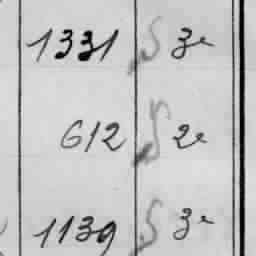 1331 S 3e
612 S 2e
1139 S 3e